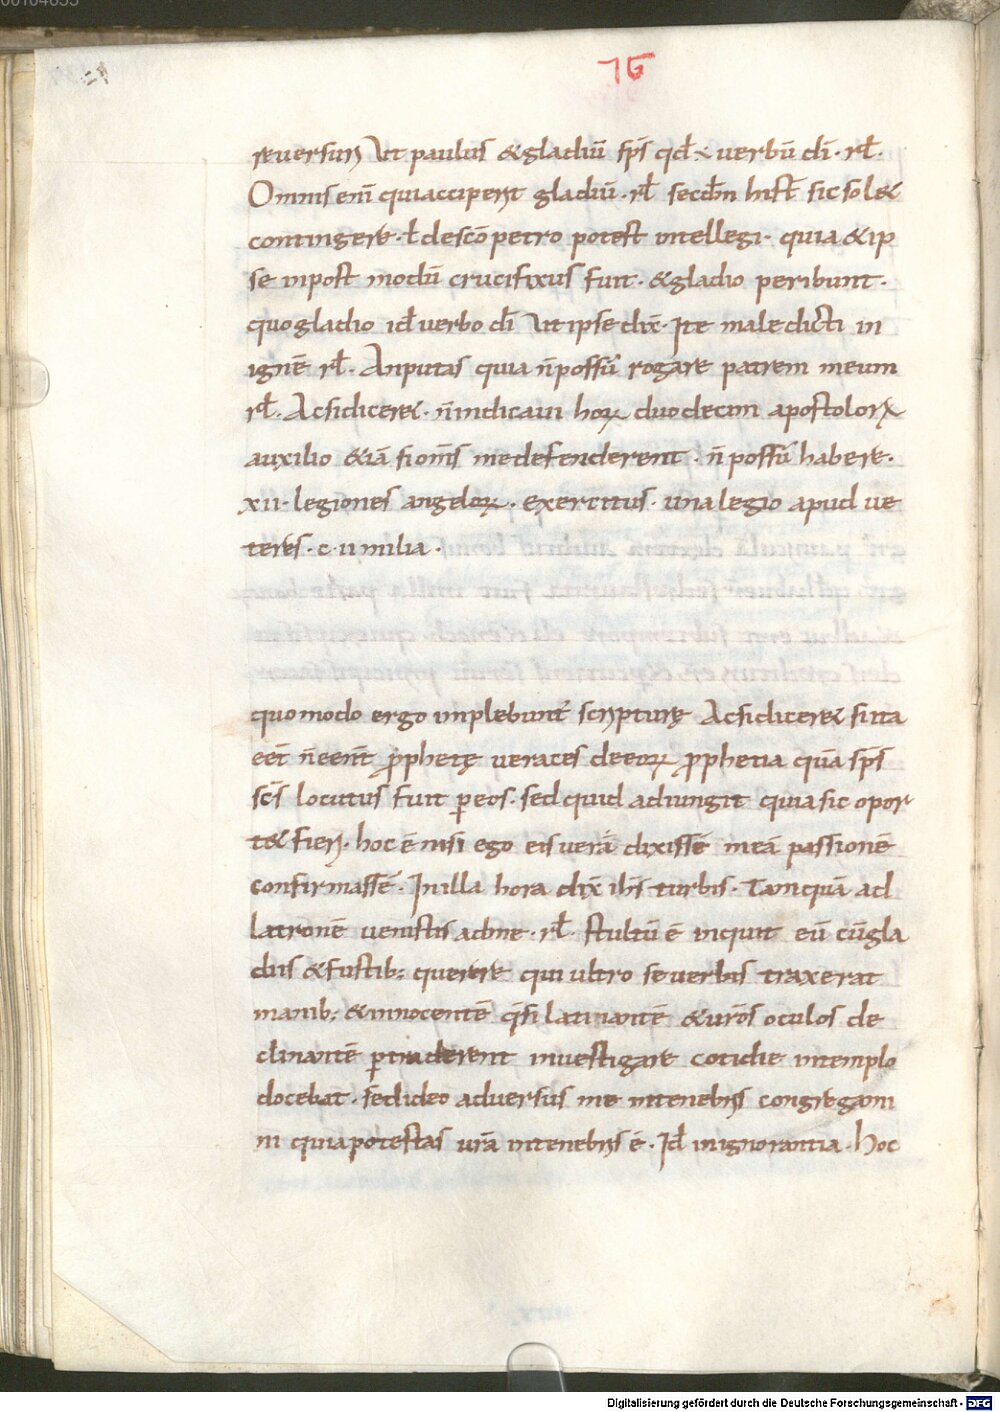 76
reuersuri ut paulus & gladiū sp̄s qđ ÷ uerbū dī · rł ·
Omnis enī qui acciperit gladiū · rł secdm hist sic sol&
contingere · ł de sc̄o petro potest intellegi · quia & ip
se in post modū crucifixus fuit · & gladio peribunt ·
quo gladio id uerbo dī ut ipse dix̄ · Ite maledicti in
ignē rł · An putas quia n̄ possū rogare patrem meum
rł · Ac si dicer& · n̄ indicaui hoꝝ duodecim apostoloꝝ
auxilio &iā si om̄s me defenderent · n̄ possū habere ·
xii · legiones angeloꝝ · exercitus · una legio apud ue
teres · c · ii milia ·
quomodo ergo implebunt̄ scripturę Ac si dicer& si ita
eēt n̄ eent ꝓphetę ueraces de eoꝝ ꝓphetia quā sp̄s
sc̄s locutus fuit ꝑ eos · sed quid adiungit quia sic opor
t& fieri · hoc ē nisi ego eis uerā dixissē meā passionē
confirmassē · In illa hora dix̄ ih̄s turbis · Tamquā ad
latronē uenistis ad me · rł · stultū ē inquit eū cū gla
diis & fustib; querere qui ultro se uerbis traxerat
manib; & innocentē q̄si latitantē & ur̄os oculos de
clinantē ꝑ traderent inuestigare cotidie in templo
docebat · sed ideo aduersus me in tenebris congregami
ni quia potestas ur̄a in tenebris ē · Id in ignorantia · hoc
Digitalisierung gefördert durch die Deutsche Forschungsgemeinschaft - DFG